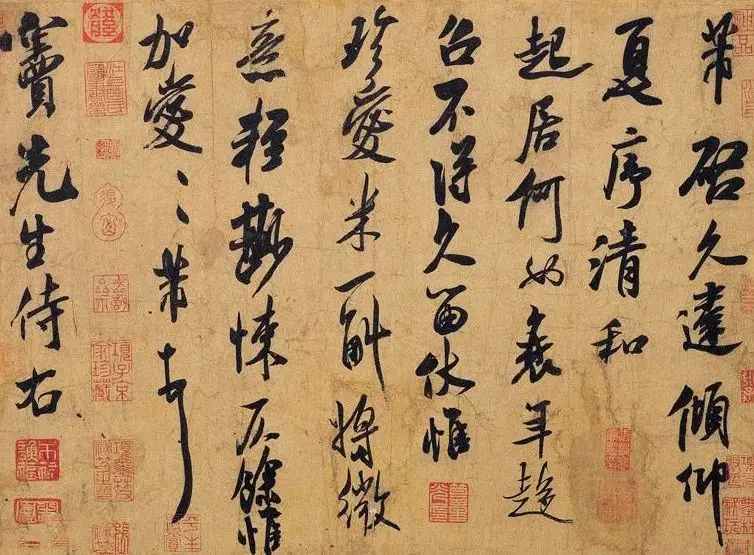 芾啓久違傾仰
夏序清和
起居何如衰年趨
召不得久留伏惟
珍愛米一斛將微
意輕尠悚仄餘惟
加愛〻芾頓首
竇先生侍右
項子京家珍藏